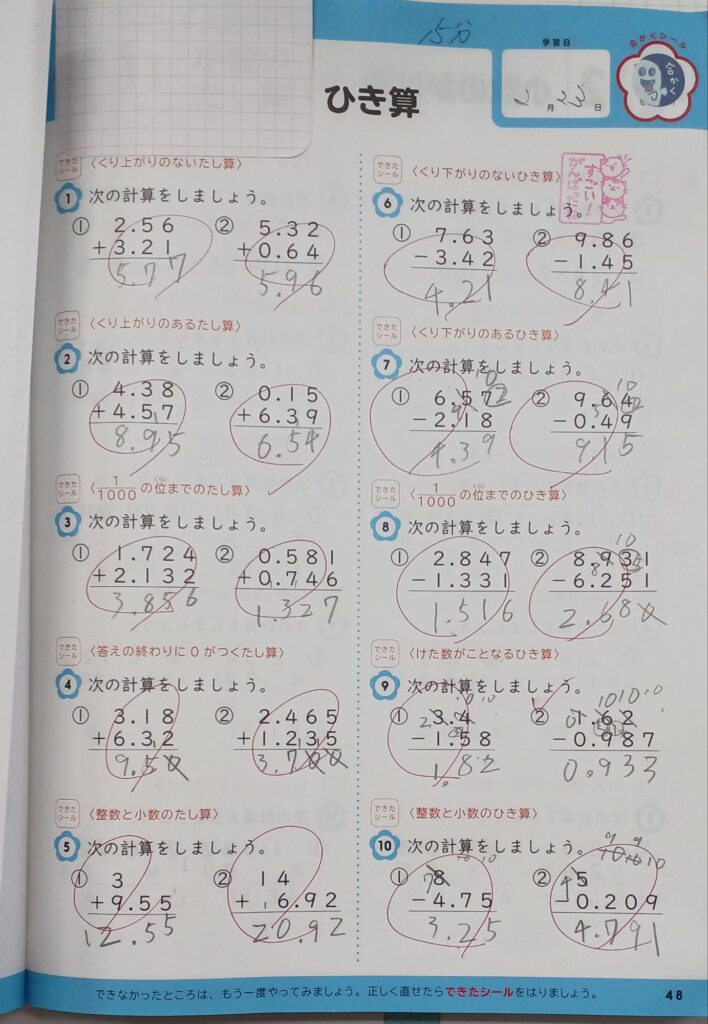 15分
学習日
2月23日
合かくシール
合かく
ひき算
できたシール 〈くり上がりのないたし算〉
1 次の計算をしましょう。
① 2.56
+3.21
5.77
② 5.32
+0.64
5.96
できたシール 〈くり上がりのあるたし算〉
2 次の計算をしましょう。
① 4.38
+4.57
8.95
② 0.15
+6.39
6.54
できたシール 〈1/1000の位までのたし算〉
くらい
3 次の計算をしましょう。
① 1.724
+2.132
3.856
② 0.581
+0.746
1.327
できたシール 〈答えの終わりに0がつくたし算〉
4 次の計算をしましょう。
① 3.18
+6.32
9.50
② 2.465
+1.235
3.700
できたシール 〈整数と小数のたし算〉
5 次の計算をしましょう。
① 3
+9.55
12.55
② 14
+ 6.92
20.92
できたシール 〈くり下がりのないひき算〉
すごい!
がんばったね
6 次の計算をしましょう。
① 7.63
-3.42
4.21
② 9.86
-1.45
8.41
できたシール 〈くり下がりのあるひき算〉
7 次の計算をしましょう。
10
① 6.57
-2.18
4.39
10
② 9.64
-0.49
9.15
できたシール 〈1/1000の位までのひき算〉
くらい
8 次の計算をしましょう。
① 2.847
-1.331
1.516
10
② 8.931
-6.251
2.680
できたシール 〈けた数がことなるひき算〉
9 次の計算をしましょう。
10 10
① 3.4
-1.58
1.82
10 10 10
② 1.62
-0.987
0.933
できたシール 〈整数と小数のひき算〉
10 次の計算をしましょう。
10 10
① 8
-4.75
3.25
9 9
10 10 10
② 5
-0.209
4.791
できなかったところは、もう一度やってみましょう。正しく直せたらできたシールをはりましょう。
48